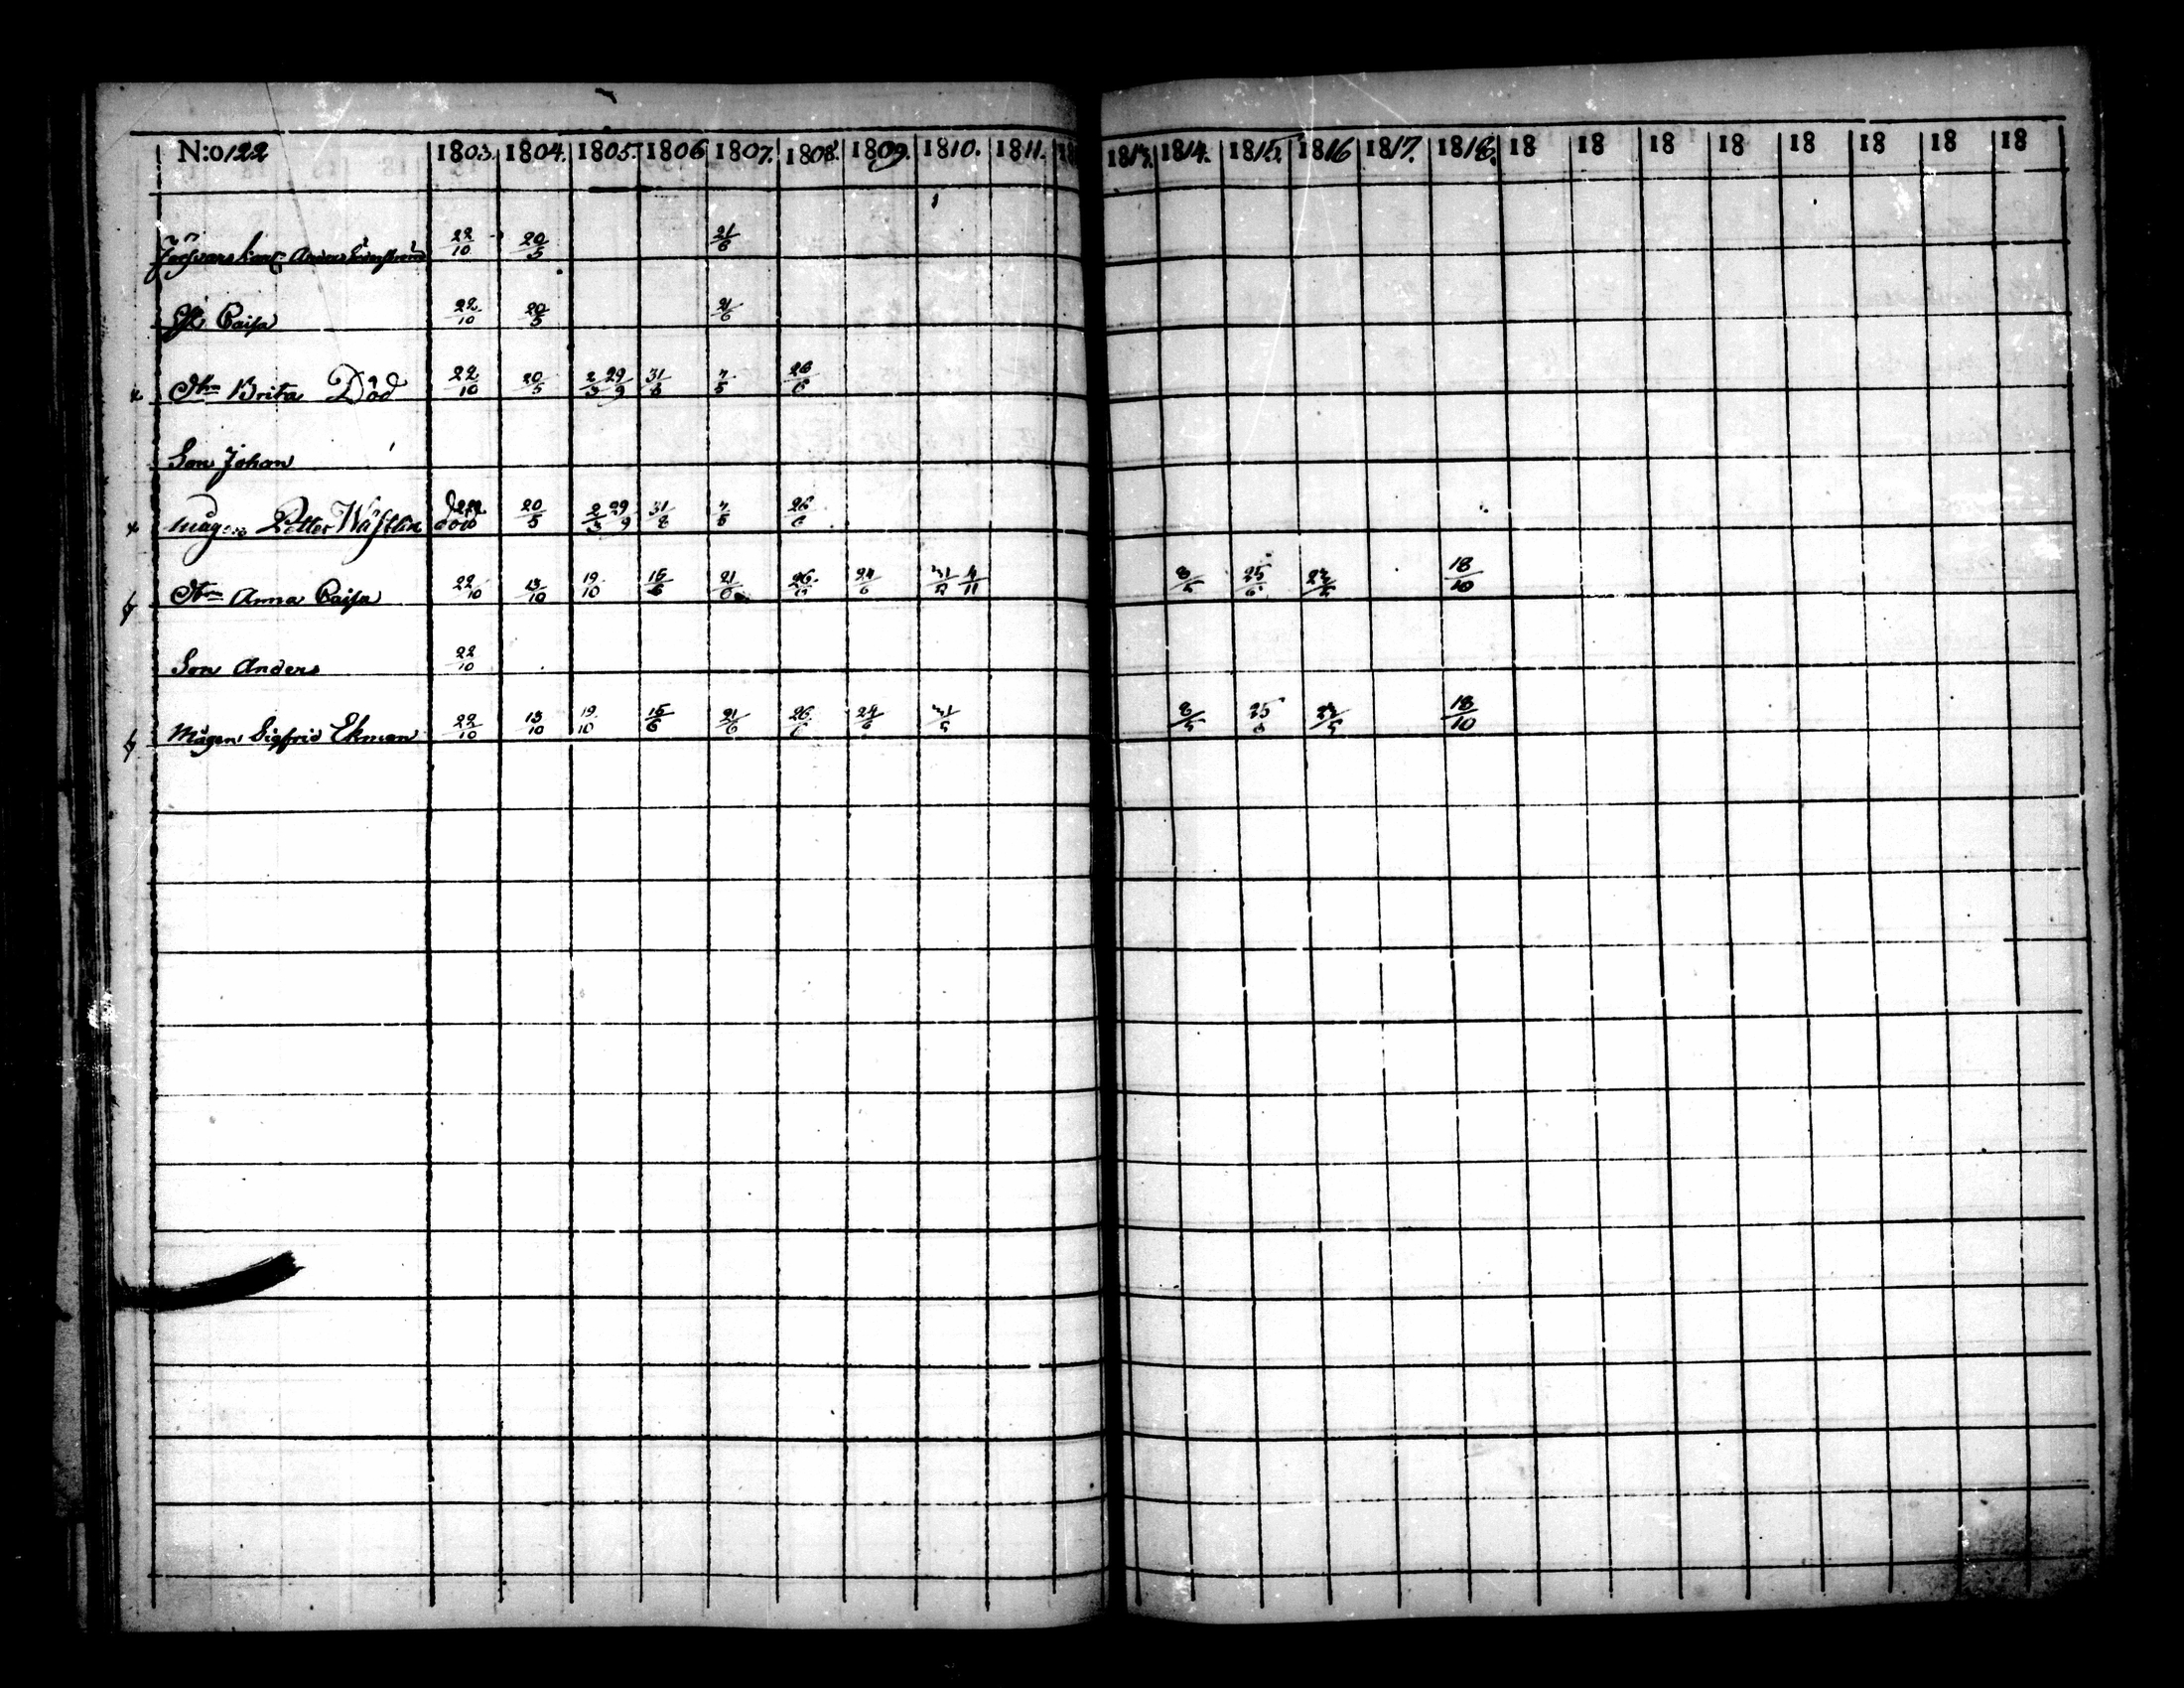 N:o 122 1803. 1804. 1805. 1806 1807. 1808. 1809. 1810. 1811. 18 1813. 1814. 1815. 1816 1817. 1818. 18 18 18 18 18 18 18 18
Anders 22/10 20/5 21/6
Caisa 22/10 20/5 21/6
Brita Död 22/10 20/5 2/3 29/9 31/8 7/5 26/6
Son Johan
mågen Petter Wästlin död 22/10 20/5 2/3 29/9 31/8 7/5 26/6
Anna Caisa 22/10 13/10 19/10 15/6 21/6 26/6 24/6 31/5 4/11 8/5 25/6 23/5 18/10
Son Anders 22/10
Mågen Sigfrid Ekman 22/10 13/10 19/10 15/6 21/6 26/6 24/6 31/5 8/5 25/6 23/5 18/10